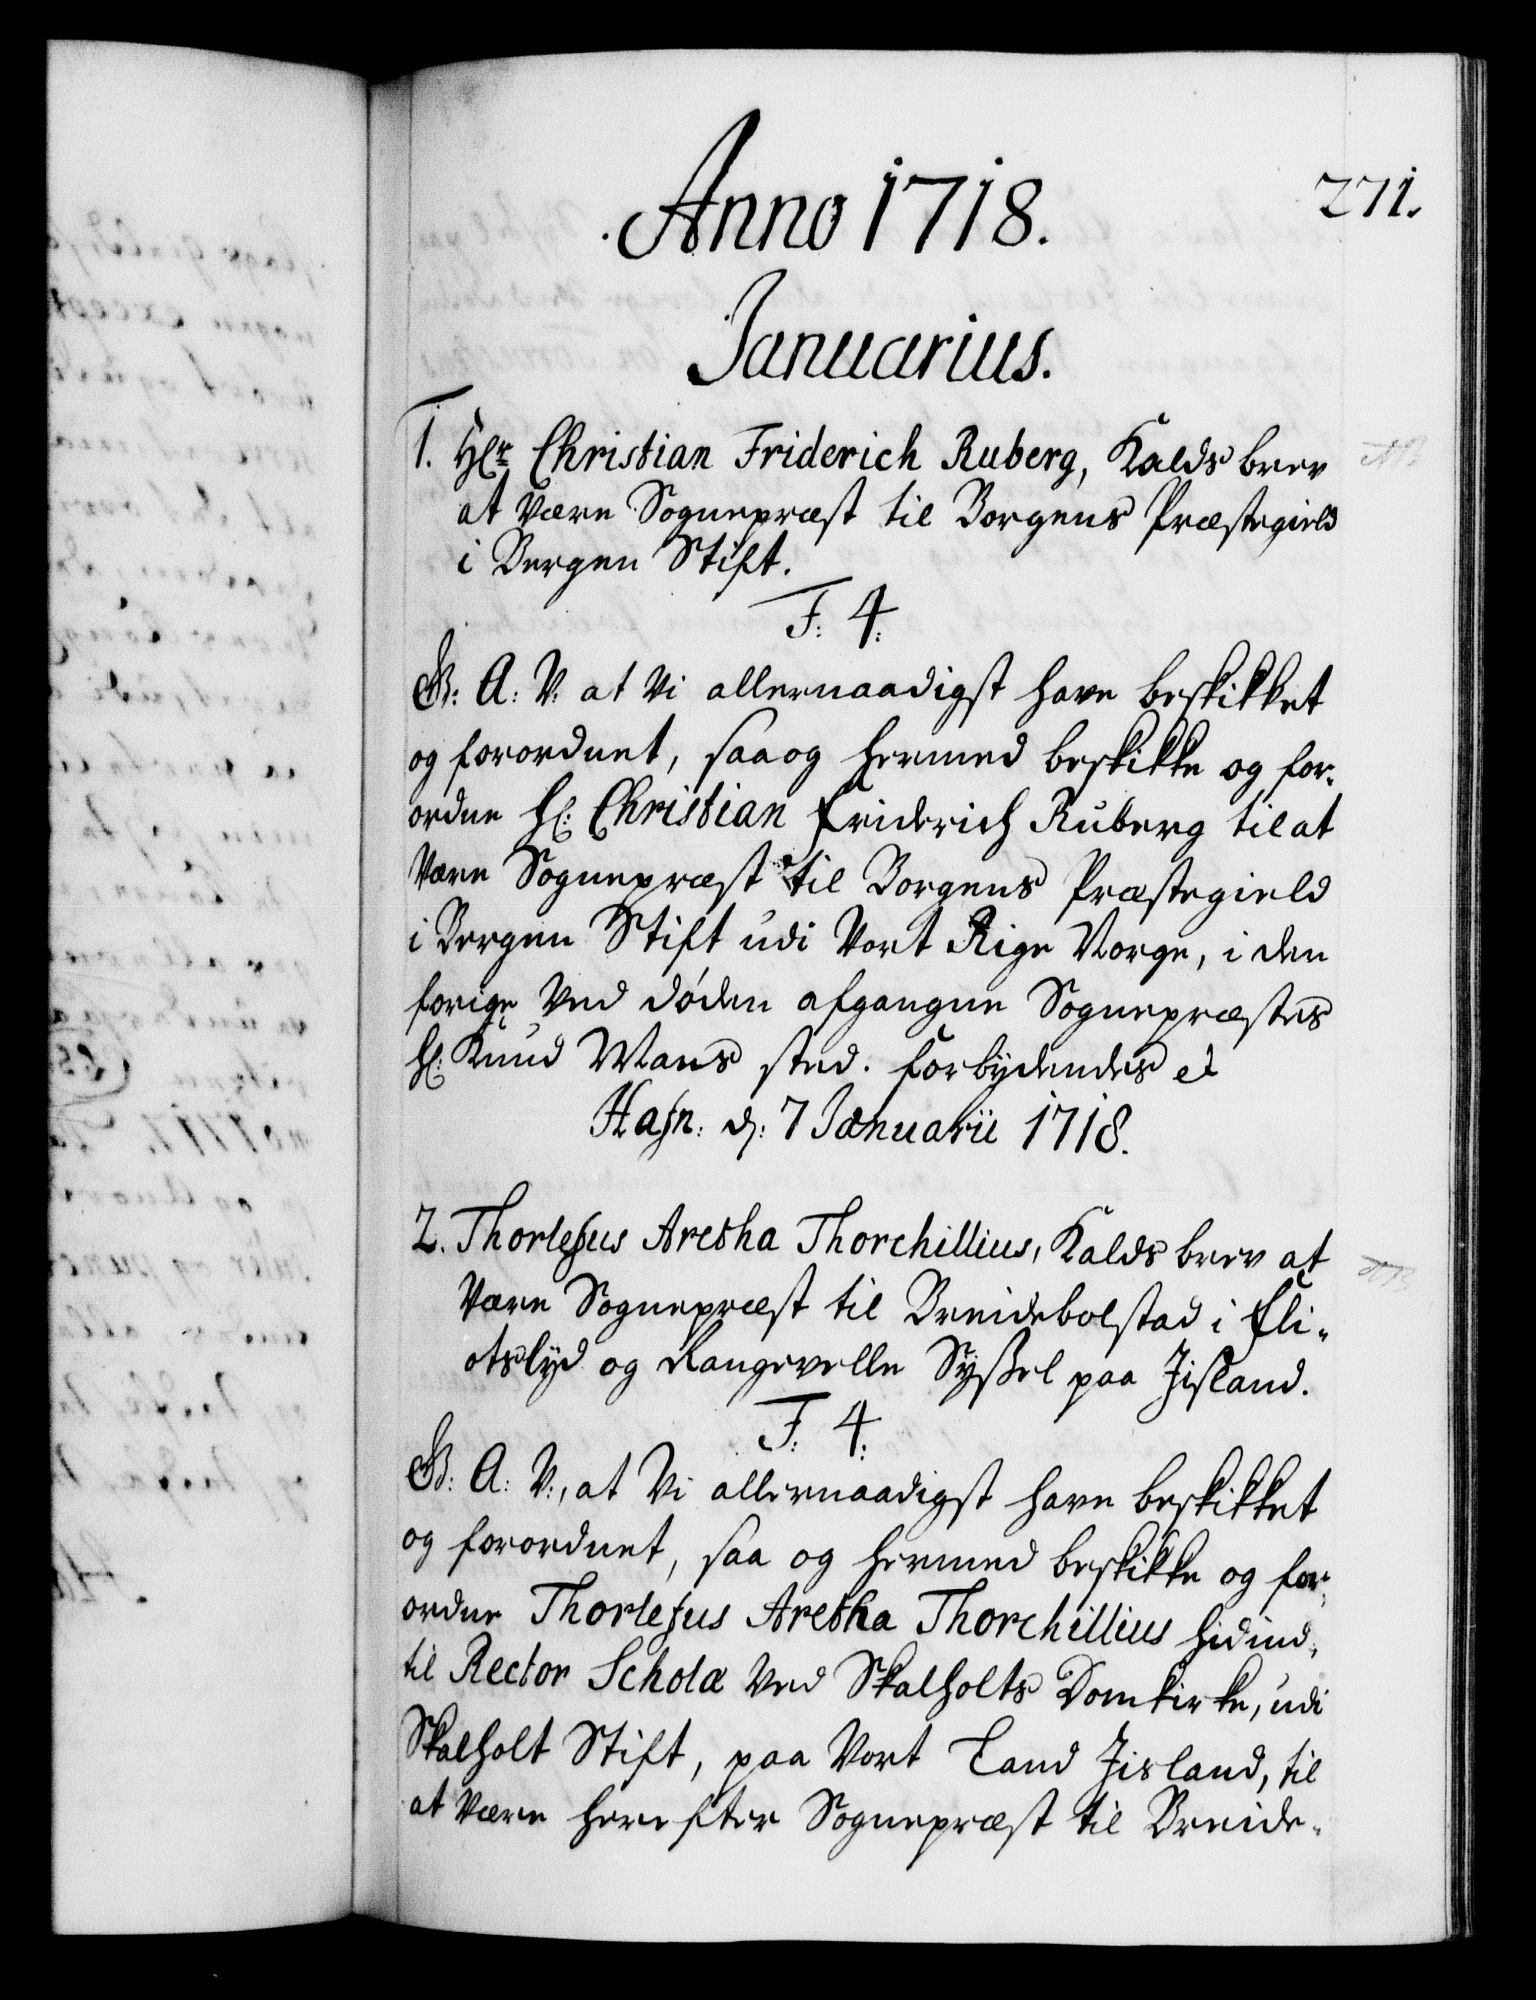 271.
Anno 1718.
Januarius.
1. Hr. Christian Friderich Ruberg, Kalds brev
at være Sognepræst til Borgens Præstegield
i Bergen Stift.
F: 4.
G: A: V: at Vi allernaadigst have beskikket
og forordnet, saa og hermed beskikke og for-
ordne Hr. Christian Friderich Ruberg til at
være Sognepræst til Borgens Præstegield
i Bergen Stift udi Vort Rige Norge, i den
forige ved døden afgangne Sognepræstes
Hr. Knud Mans sted. Forbydendes et
Hafn: d: 7 Januarii 1718.
2. Thorlefus Aretha Thorchillius, Kalds brev at
være Sognepræst til Breidebolstad i Fli-
otslyd og Rangevelle Syssel paa Jisland.
F: 4.
G: A: V:, at Vi allernaadigst have beskikket
og forordnet, saa og hermed beskikke og for-
ordne Thorlefus Aretha Thorchillius hidind-
til Rector Scholæ ved Skalholts Domkirke, udi
Skalholt Stift, paa Vort Land Jisland, til
at være herefter Sognepræst til Breide-